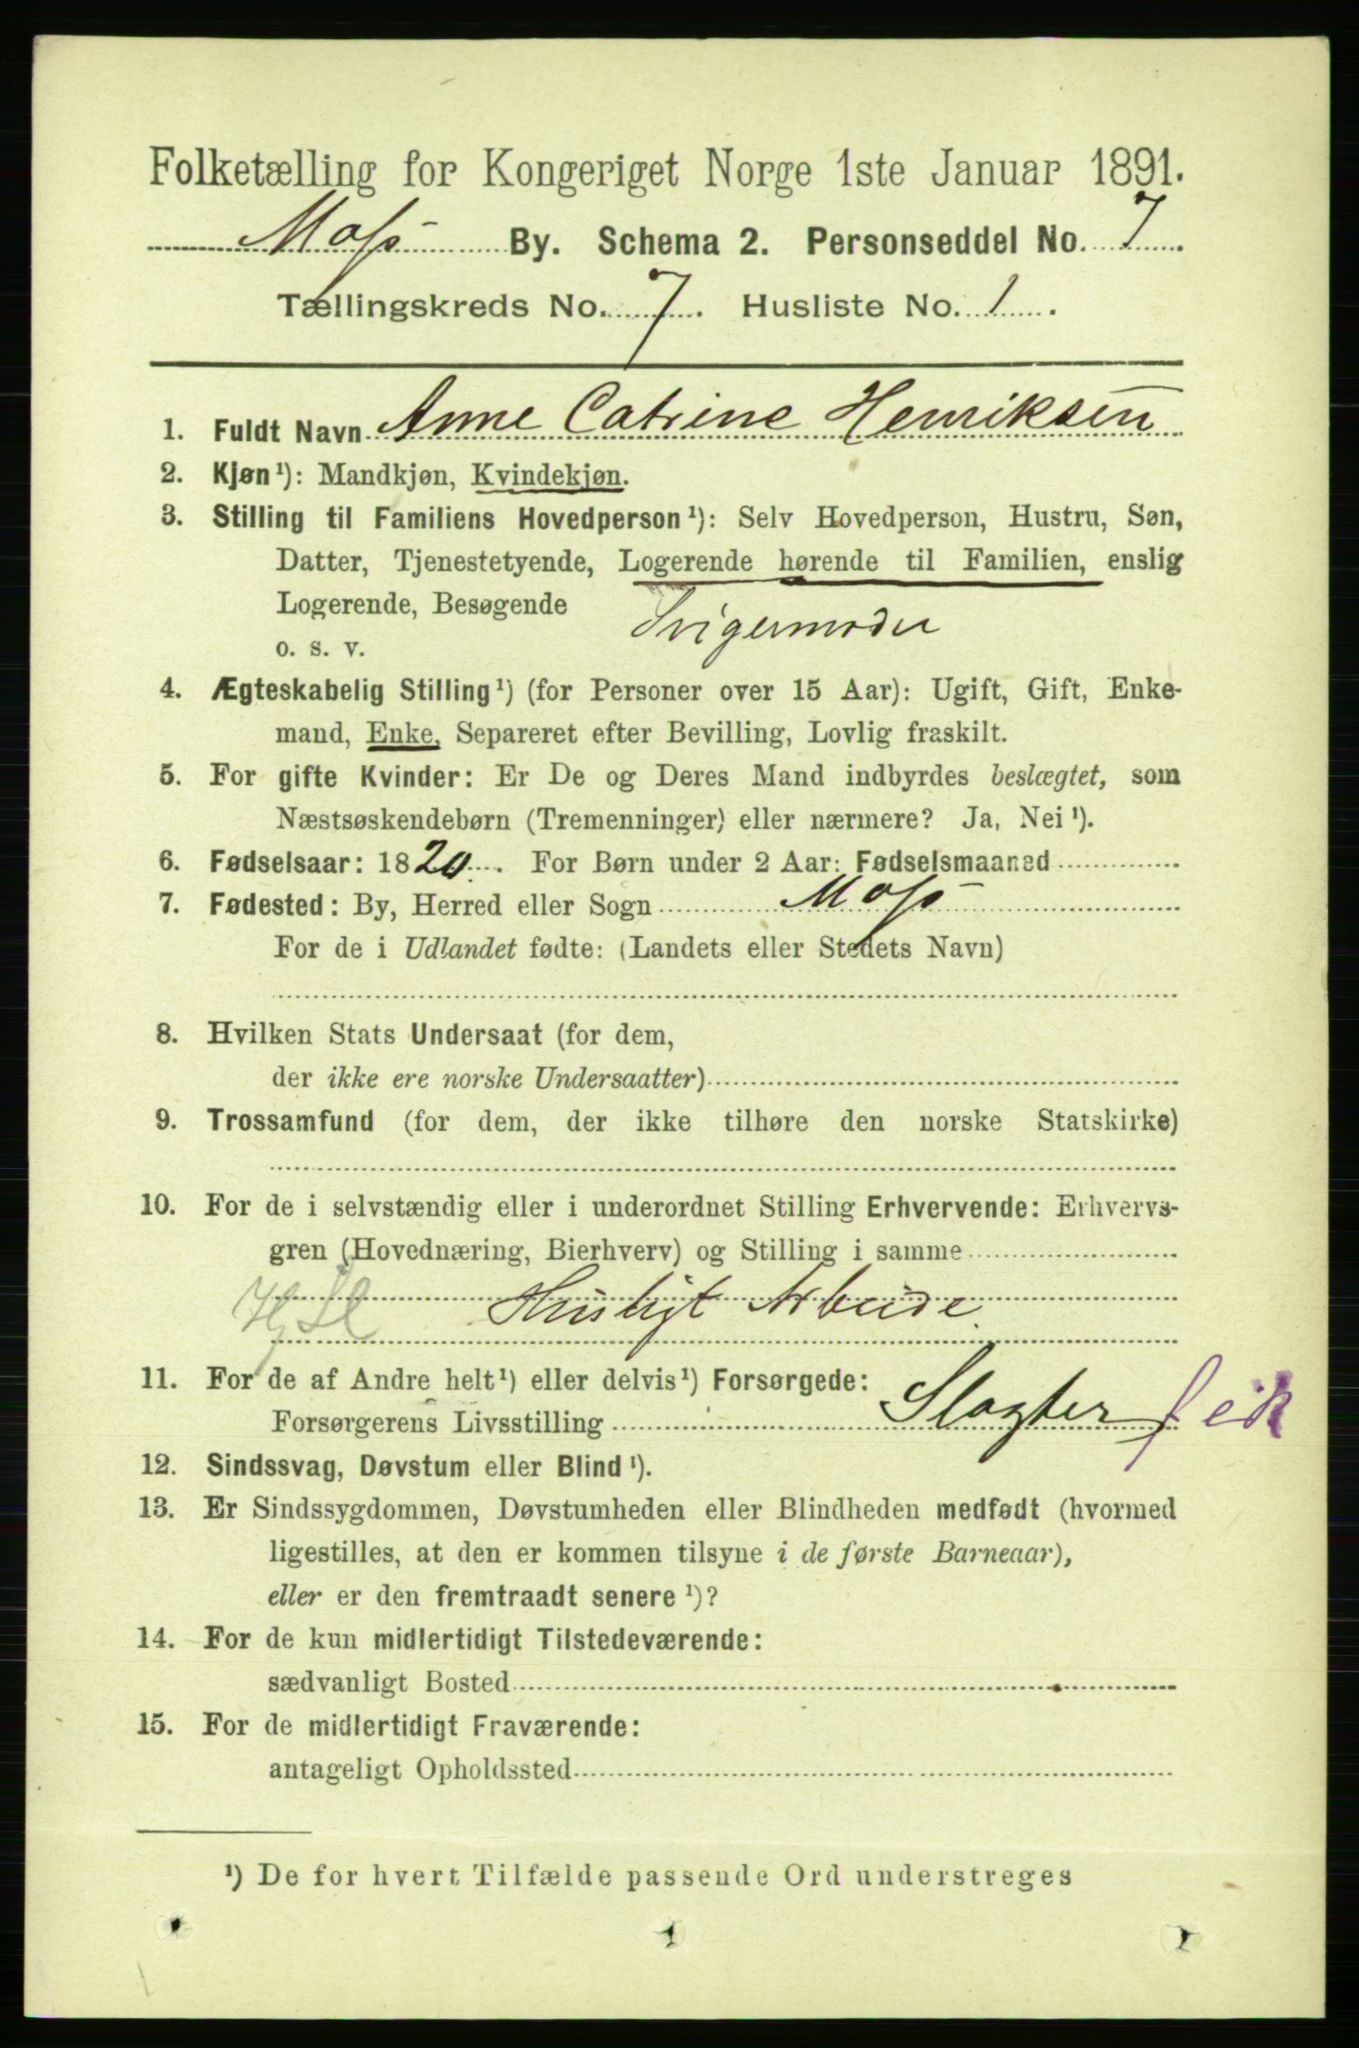 Folketælling for Kongeriget Norge 1ste Januar 1891.
Moss By. Schema 2. Personseddel No. 7.
Tællingskreds No. 7. Husliste No. 1.
1. Fuldt Navn Anne Catrine Henriksen
2. Kjøn¹): Mandkjøn, Kvindekjøn.
3. Stilling til Familiens Hovedperson¹): Selv Hovedperson, Hustru, Søn,
Datter, Tjenestetyende, Logerende hørende til Familien, enslig
Logerende, Besøgende
o. s. v.
Svigermoder
4. Ægteskabelig Stilling¹) (for Personer over 15 Aar): Ugift, Gift, Enke-
mand, Enke, Separeret efter Bevilling, Lovlig fraskilt.
5. For gifte Kvinder: Er De og Deres Mand indbyrdes beslægtet, som
Næstsøskendebørn (Tremenninger) eller nærmere? Ja, Nei¹).
6. Fødselsaar: 1820. For Børn under 2 Aar: Fødselsmaaned
7. Fødested: By, Herred eller Sogn Moss
For de i Udlandet fødte: (Landets eller Stedets Navn)
8. Hvilken Stats Undersaat (for dem,
der ikke ere norske Undersaatter)
9. Trossamfund (for dem, der ikke tilhøre den norske Statskirke)
10. For de i selvstændig eller i underordnet Stilling Erhvervende: Erhvervs-
gren (Hovednæring, Bierhverv) og Stilling i samme
Husligt Arbeide.
11. For de af Andre helt¹) eller delvis¹) Forsørgede:
Forsørgerens Livsstilling Slagter
12. Sindssvag, Døvstum eller Blind¹).
13. Er Sindssygdommen, Døvstumheden eller Blindheden medfødt (hvormed
ligestilles, at den er kommen tilsyne i de første Barneaar),
eller er den fremtraadt senere¹)?
14. For de kun midlertidigt Tilstedeværende:
sædvanligt Bosted
15. For de midlertidigt Fraværende:
antageligt Opholdssted
¹) De for hvert Tilfælde passende Ord understreges